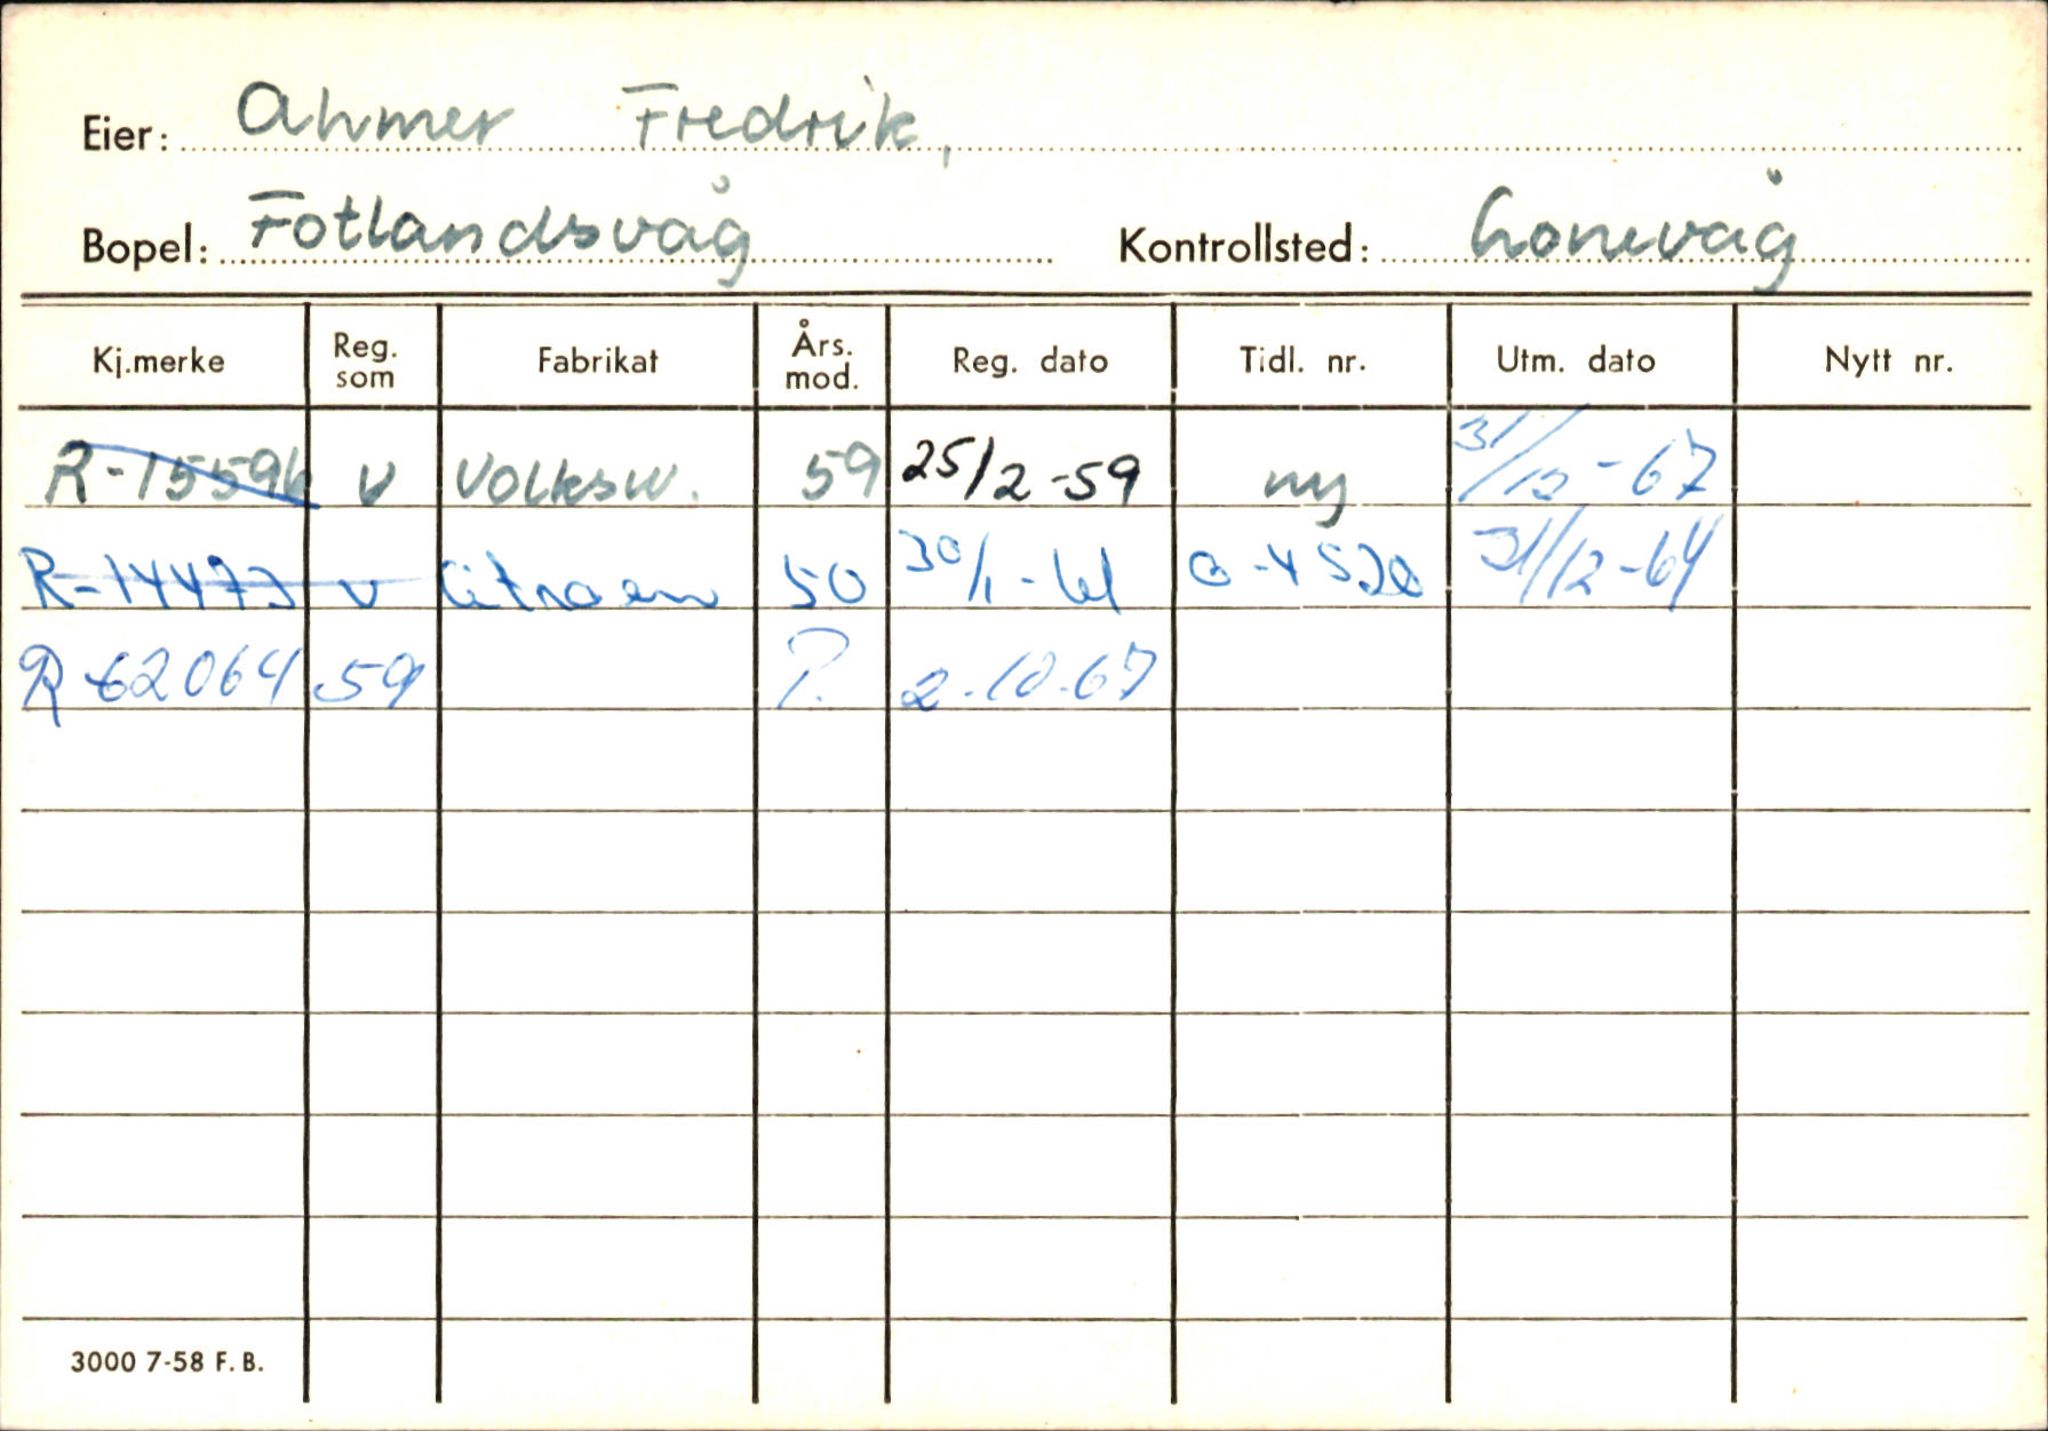 Eier: Ahmer Fredrik,
Bopel: Fotlandsvåg Kontrollsted: Lonevåg
Kj.merke Reg. som Fabrikat Års. mod. Reg. dato Tidl. nr. Utm. dato Nytt nr.
R-15596 v Volksw. 59 25/2-59 ny 31/12-67
R-14473 v Citroen 50 30/1-61 31/12-64
R-62064 59 P. 2-10-67
3000 7-58 F. B.